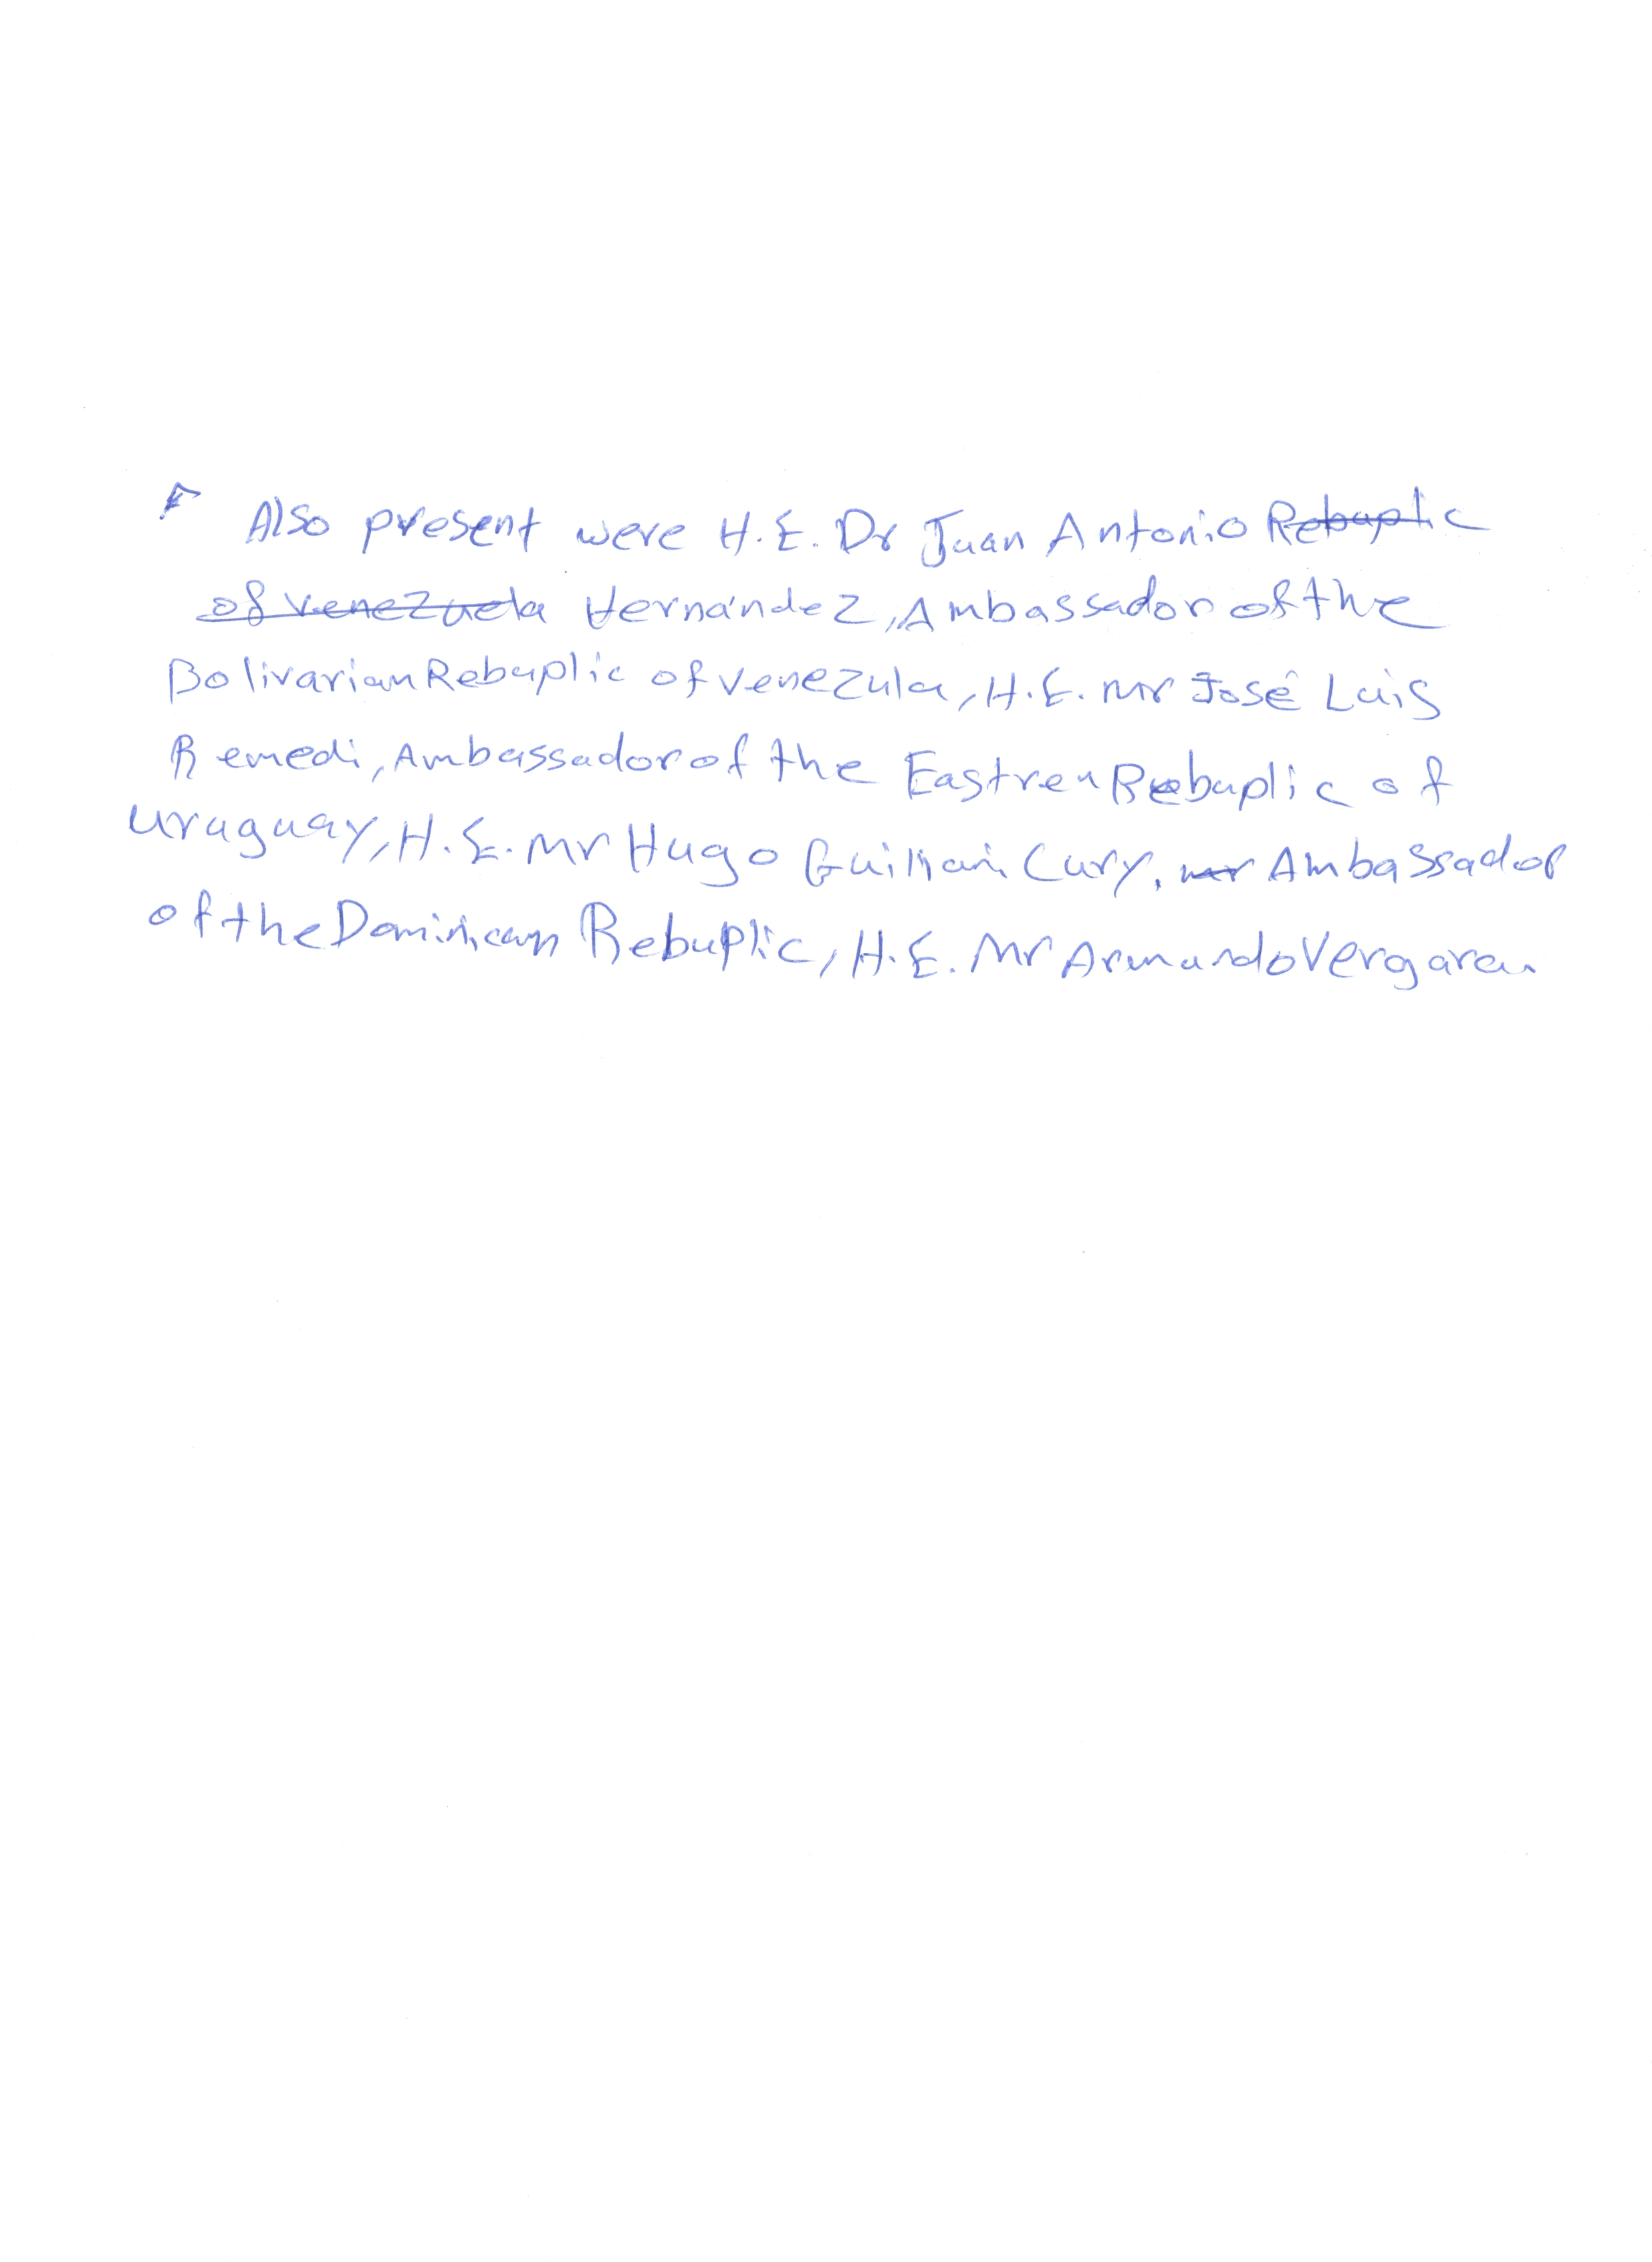 Also present were H.E. Dr Juan Antonio Rebuplic
of Venezuela Hernández, Ambassador of the
Bolivarian Rebuplic of Venezula, H.E. Mr José Luis
Remedi, Ambassador of the Eastren Rebuplic of
Uruguay, H.E. Mr Hugo Guiliani Cury, mr Ambassador
of the Dominican Rebuplic, H.E. Mr Armando Vergara